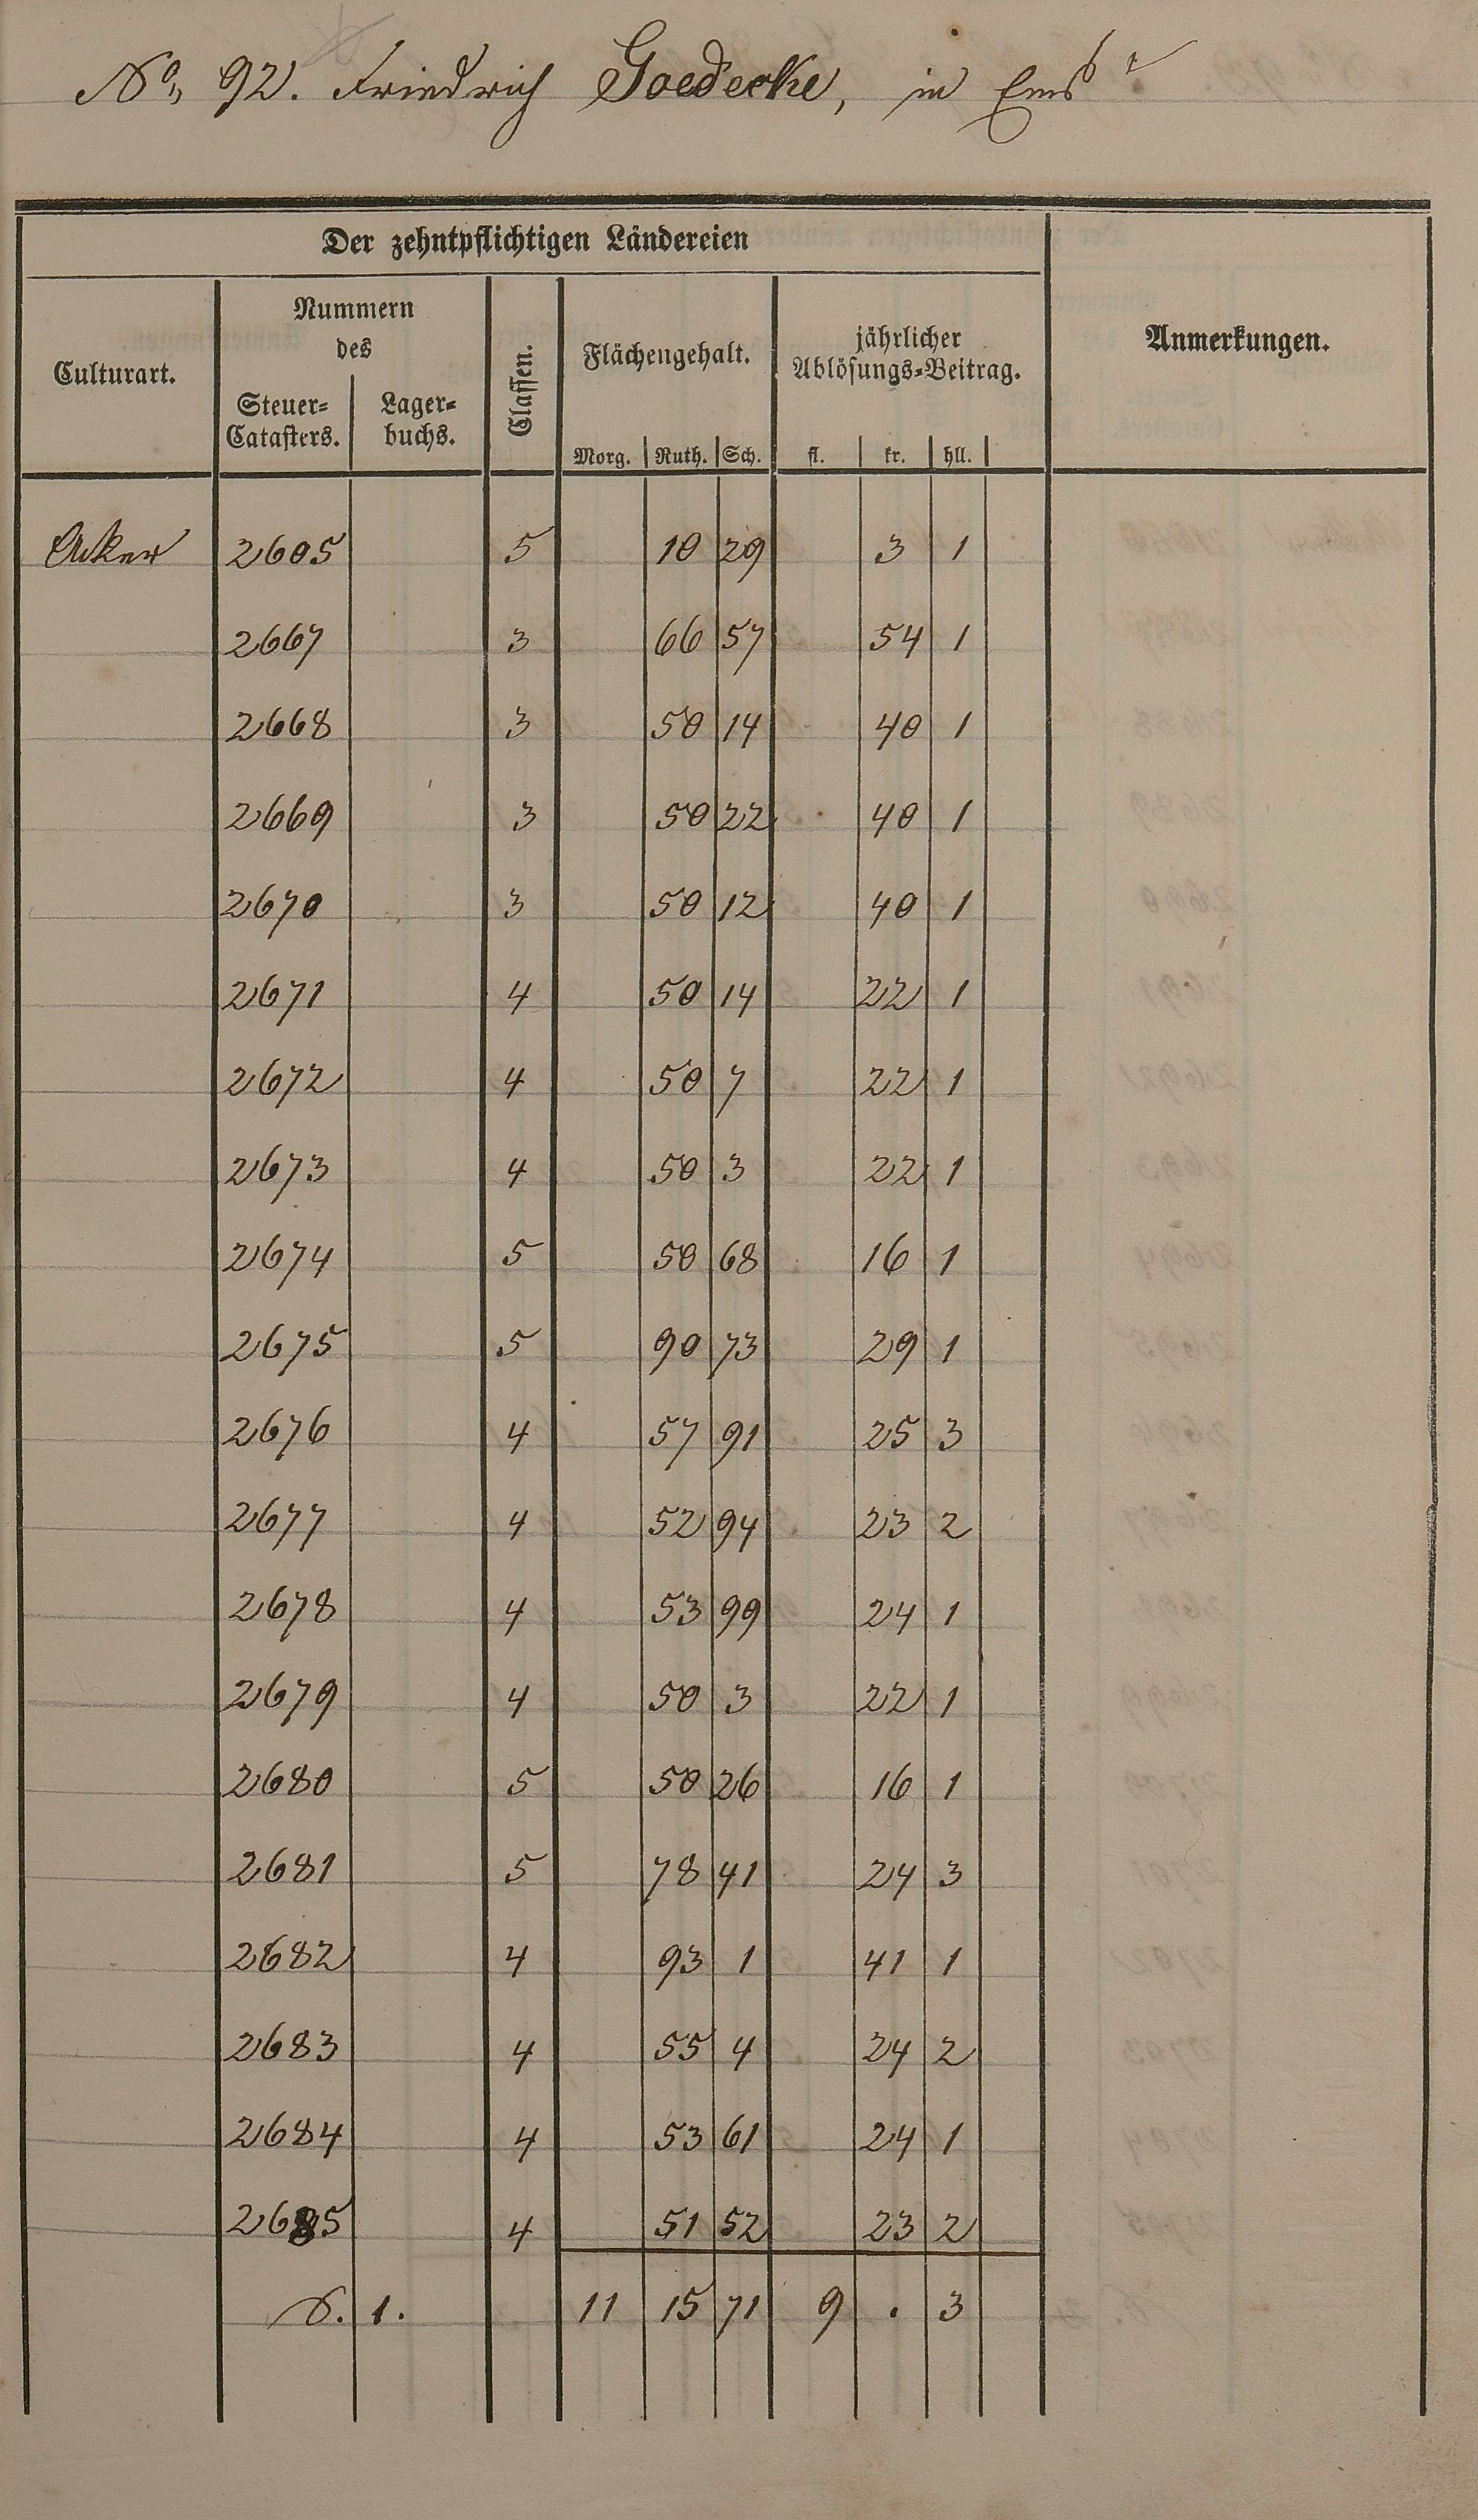 No. 92. Friedrich Goedecke, in Ems
Der zehntpflichtigen Ländereien
Culturart.
Nummern
des
Steuer-
Catasters.
Lager-
buchs.
Classen.
Flächengehalt.
Morg. Ruth. Sch.
jährlicher
Ablösungs-Beitrag.
fl. kr. hll.
Anmerkungen.
Acker 2605 5 10 29 3 1
2667 3 66 57 54 1
2668 3 50 14 40 1
2669 3 50 22 40 1
2670 3 50 12 40 1
2671 4 50 14 22 1
2672 4 50 7 22 1
2673 4 50 3 22 1
2674 5 50 68 16 1
2675 5 90 73 29 1
2676 4 57 91 25 3
2677 4 52 94 23 2
2678 4 53 99 24 1
2679 4 50 3 22 1
2680 5 50 26 16 1
2681 5 78 41 24 3
2682 4 93 1 41 1
2683 4 55 4 24 2
2684 4 53 61 24 1
2685 4 51 52 23 2
S. 1. 11 15 71 9 . 3